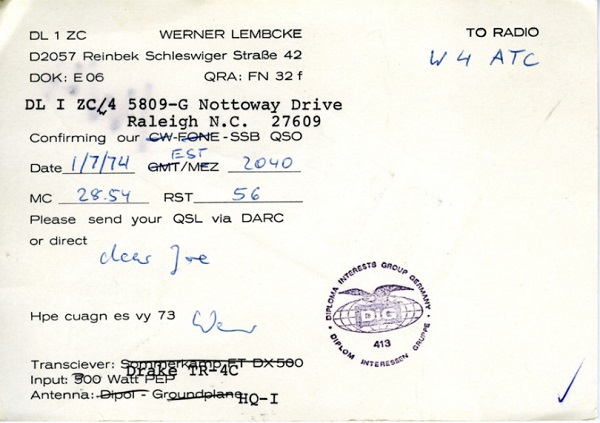 DL 1 ZC WERNER LEMBCKE TO RADIO
D2057 Reinbek Schleswiger Straße 42 W4 ATC
DOK: E 06 QRA: FN 32 f
DL I ZC/4 5809-G Nottoway Drive
Raleigh N.C. 27609
Confirming our CW-FONE-SSB QSO
EST
Date 1/7/74 GMT/MEZ 2040
MC 28.54 RST 56
Please send your QSL via DARC
or direct
dear Joe
Hpe cuagn es vy 73
DIPLOMA INTERESTS GROUP GERMANY
DIG
413
DIPLOM INTERESSEN GRUPPE
Transciever: Sommerkamp FT DX 500
Drake TR-4C
Input: 300 Watt PEP
Antenna: Dipol - Groundplane HQ-I